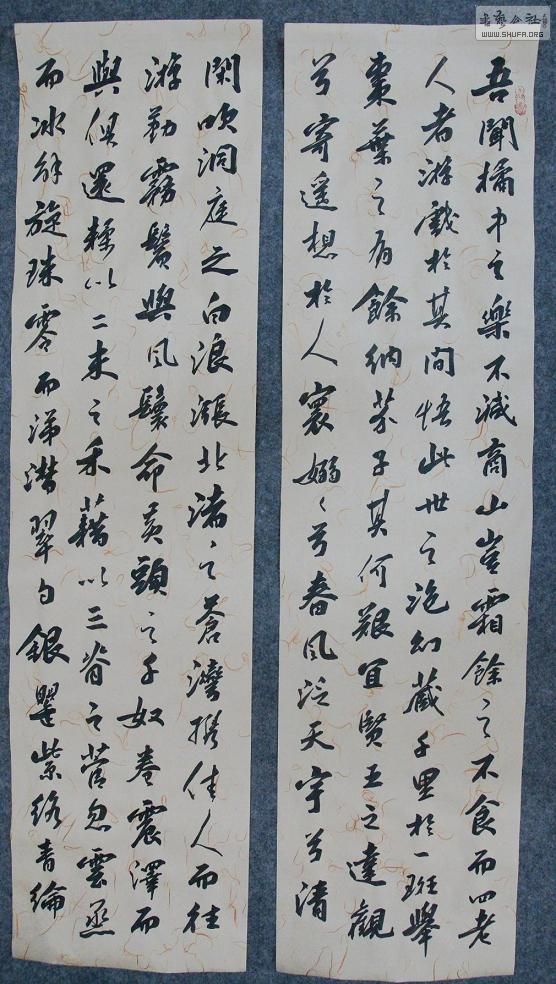 吾聞橘中之樂不減商山豈霜餘之不食而四老
人者游戲於其間悟此世之泡幻藏千里於一班舉
棗葉之有餘納芥子其何艱宜賢王之達觀
兮寄遥想於人寰嫋々兮春風泛天宇兮清
閑吹洞庭之白浪漲北渚々之蒼灣携佳人而往
游勤霧鬢與風鬟命黄頭之千奴卷震澤而
與俱還糅以二米之禾藉以三脊之菅忽雲烝
而冰解旋珠零而涕潸翠勺銀罌紫絡青綸
書藝公社
WWW.SHUFA.ORG